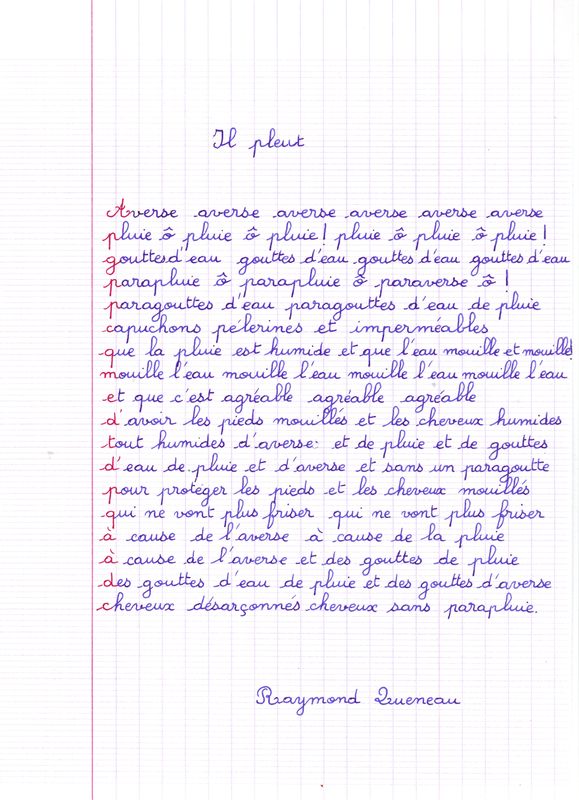 Il pleut
Averse averse averse averse averse averse
pluie ô pluie ô pluie! pluie ô pluie ô pluie!
gouttes d'eau gouttes d'eau gouttes d'eau gouttes d'eau
parapluie ô parapluie ô paraverse ô!
paragouttes d'eau paragouttes d'eau de pluie
capuchons pélerines et imperméables
que la pluie est humide et que l'eau mouille et mouille!
mouille l'eau mouille l'eau mouille l'eau mouille l'eau
et que c'est agréable agréable agréable
d'avoir les pieds mouillés et les cheveux humides
tout humides d'averse et de pluie et de gouttes
d'eau de pluie et d'averse et sans un paragoutte
pour protéger les pieds et les cheveux mouillés
qui ne vont plus friser qui ne vont plus friser
à cause de l'averse à cause de la pluie
à cause de l'averse et des gouttes de pluie
des gouttes d'eau de pluie et des gouttes d'averse
cheveux désarçonnés cheveux sans parapluie.
Raymond Queneau